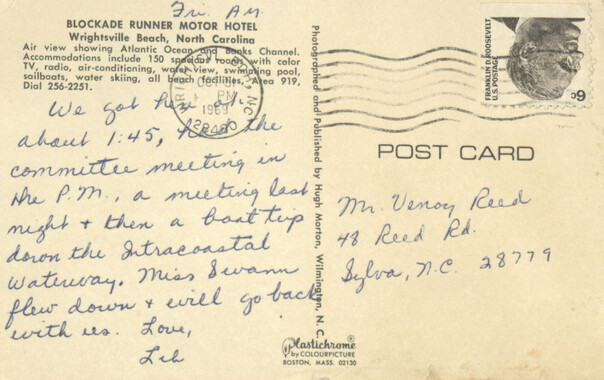 Fri. AM.
BLOCKADE RUNNER MOTOR HOTEL
Wrightsville Beach, North Carolina
Air view showing Atlantic Ocean and Banks Channel.
Accommodations include 150 spacious rooms with color
TV, radio, air-conditioning, water view, swimming pool,
sailboats, water skiing, all beach facilities, Area 919,
Dial 256-2251.
We got here at
about 1:45, had the
committee meeting in
the P.M., a meeting last
night + then a boat trip
down the Intracoastal
Waterway. Miss Swann
flew down + will go back
with us. Love,
Lib
PM
1969
28480
Photographed and Published by Hugh Morton, Wilmington, N. C.
FRANKLIN D. ROOSEVELT
U.S. POSTAGE
6¢
POST CARD
Mr. Venoy Reed
48 Reed Rd.
Sylva, N.C. 28779
Plastichrome
by COLOURPICTURE
BOSTON, MASS. 02130